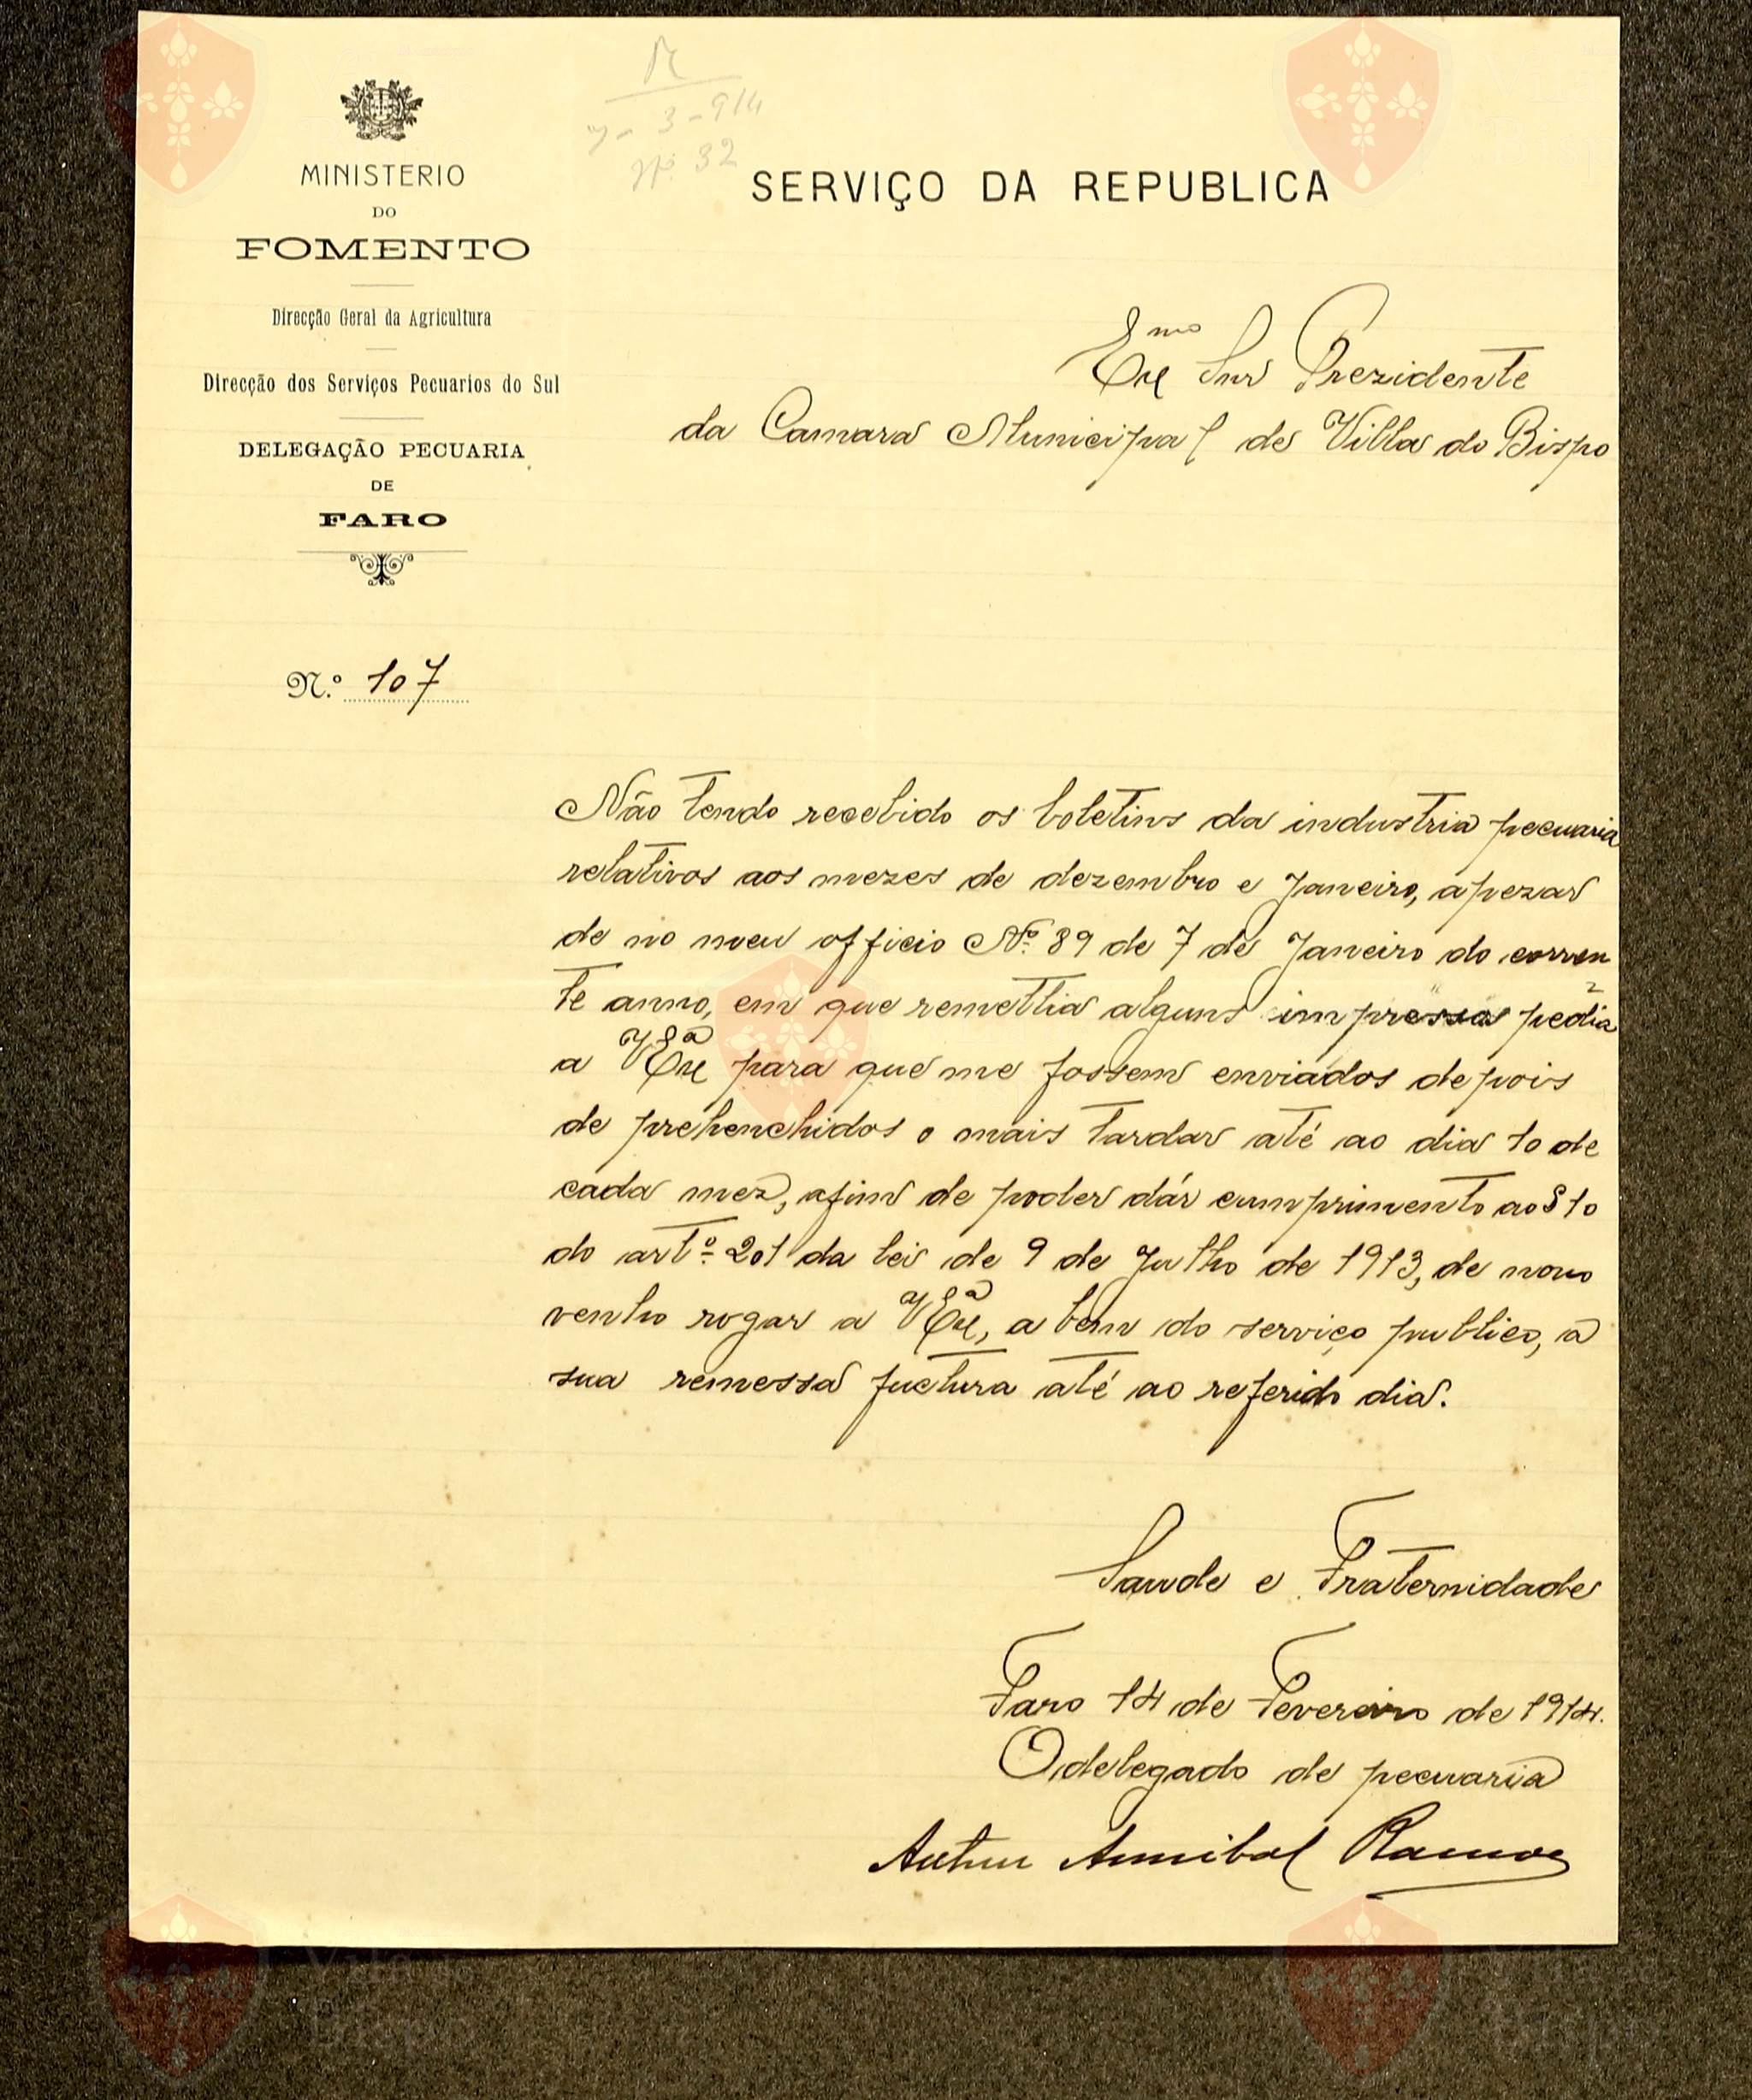 R
7-3-914
Nº 32
MINISTERIO
DO
FOMENTO
Direcção Geral da Agricultura
Direcção dos Serviços Pecuarios do Sul
DELEGAÇÃO PECUARIA
DE
FARO
N.º 107
SERVIÇO DA REPUBLICA
Exmo Snr Prezidente
da Camara Municipal de Villa do Bispo
Não tendo recebido os boletins da industria pecuaria
relativos aos mezes de dezembro e Janeiro, apezar
de no meu officio Nº 89 de 7 de Janeiro do corren
te anno, em que remettia alguns impressos pedia
a VExª para que me fossem enviados depois
de prehenchidos o mais tardar até ao dia 10 de
cada mez, afim de poder dár cumprimento ao § 10
do artº 201 da lei de 9 de Julho de 1913, de novo
venho rogar a VExª, a bem do serviço publico, a
sua remessa fuctura até ao referido dia.
Saude e Fraternidade
Faro 14 de Fevereiro de 1914.
O delegado de pecuaria
Arthur Annibal Ramos